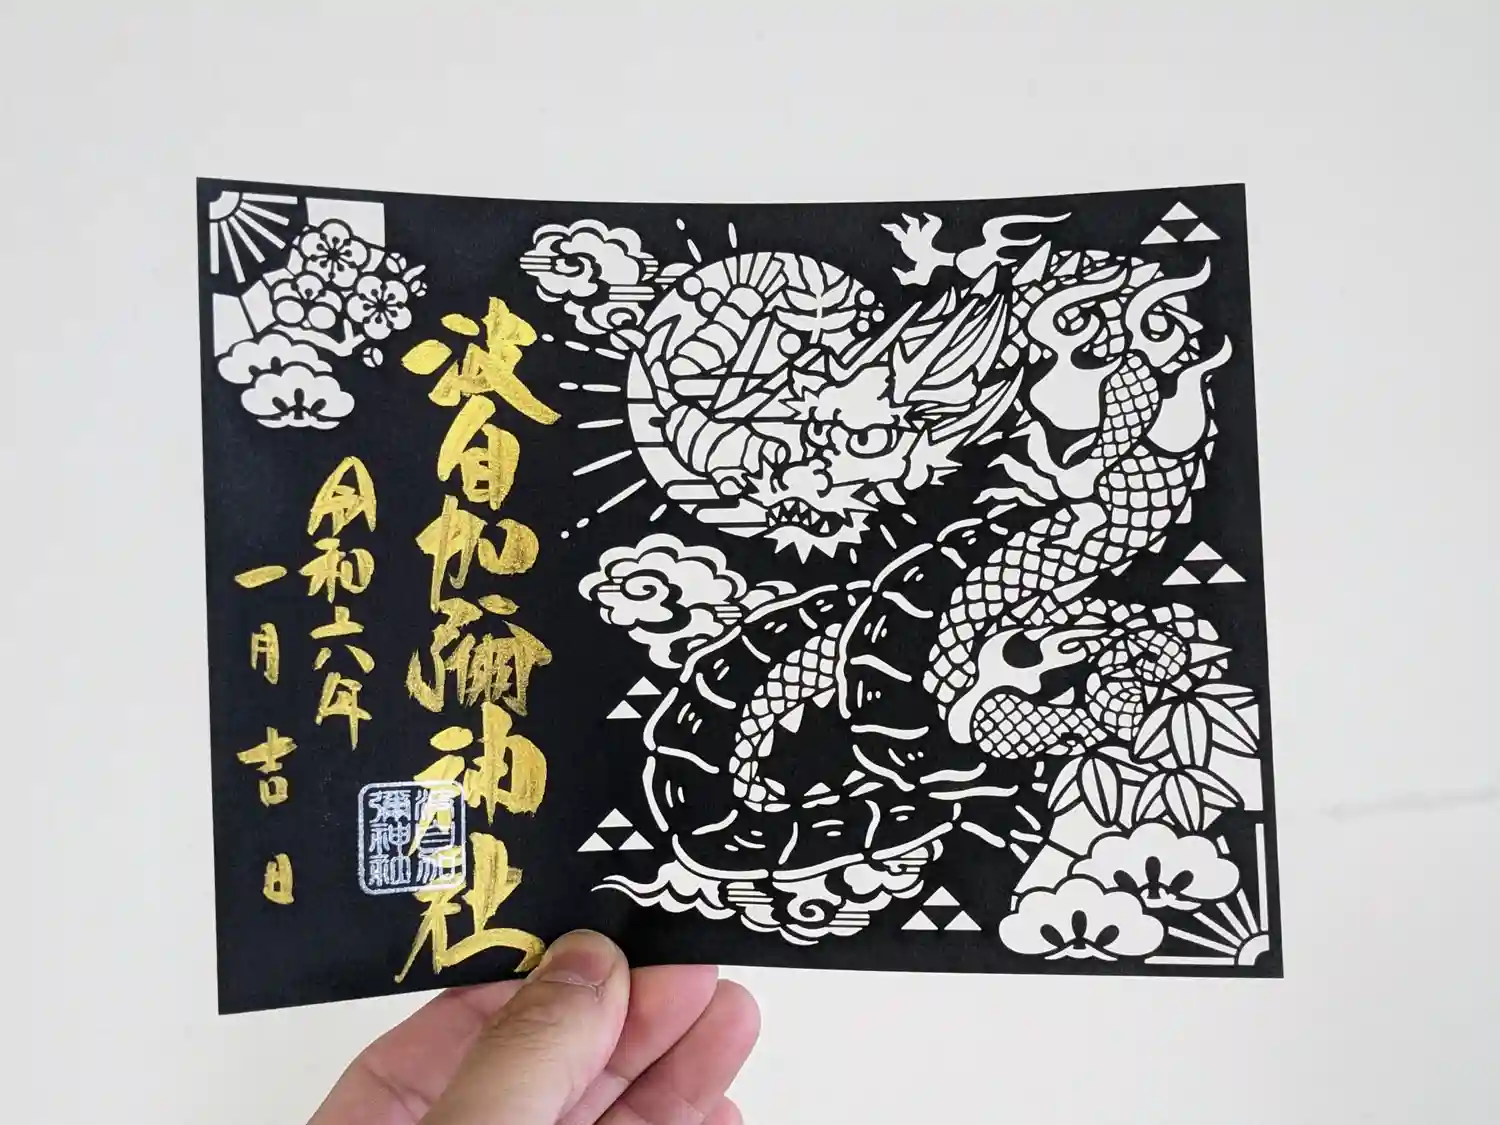 波自加彌神社
令和六年
一月吉日
波自加
彌神社